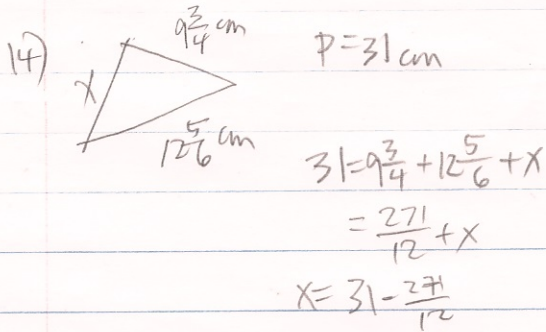 14)
9 3/4 cm
x
12 5/6 cm
P = 31 cm
31 = 9 3/4 + 12 5/6 + x
= 271/12 + x
x = 31 - 271/12